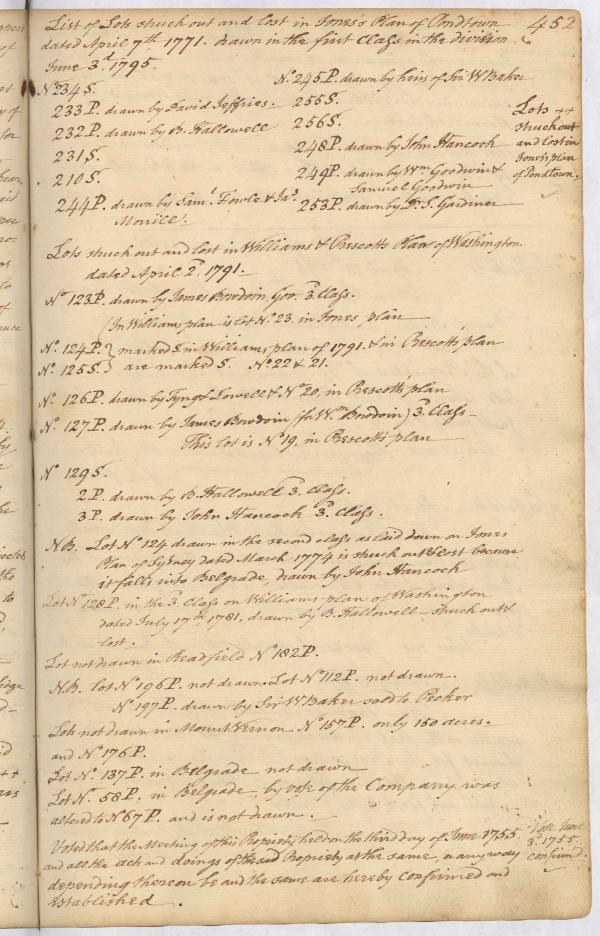 452
List of Lots struck out and lost in Jones's Plan of Pondtown
dated April 7th 1771. drawn in the first Class in the division
June 3d 1795.
No 234 S.
233 P. drawn by David Jeffries.
232 P. drawn by B. Hallowell
231 S.
210 S.
244 P. drawn by Saml. Fowle & Jas.
Morrill.
No. 245 P. drawn by heirs of Sir W Baker
255 S.
256 S.
248 P. drawn by John Hancock
249 P. drawn by Wm. Goodwin &
Samuel Goodwin
253 P. drawn by Dr. S. Gardiner
Lots ++
struck out
and lost in
Jones's plan
of Pondtown.
Lots struck out and lost in Williams & Prescotts Plan of Washington
dated April 2d. 1791.
No 123 P. drawn by James Bowdoin, Gov. 3d. Class.
(In Williams plan is lot No. 23. in Jones plan
No. 124 P. } marked S. in Williams, plan of 1791. & in Prescotts plan
No. 125 S. } are marked S. No. 22 & 21.
No. 126 P. drawn by Tyng & Lowell & No. 20, in Prescott's plan
No. 127 P. drawn by James Bowdoin (for Wm. Bowdoin) 3d. Class
This lot is No 19, in Prescott's plan
No 129 S.
2 P. drawn by B. Hallowell 3d. Class.
3 P. drawn by John Hancock 3d. Class.
N.B. Lot No 124 drawn in the second class as laid down on Jones
Plan of Sydney dated March 1774 is struck out & lost because
it falls into Belgrade, drawn by John Hancock
Lot No 128 P. in the 3d. Class on Williams plan of Washington
dated July 17th 1781, drawn by B. Hallowell - struck out &
lost.
Lot not drawn in Readfield No 182 P.
N.B. lot No 196 P. not drawn. Lot No 112 P. not drawn.
No 197 P. drawn by Sir W Baker sold to Pecker
Lots not drawn in Mount Vernon No 157 P. only 150 acres.
and No 176 P.
Lot No. 137 P. in Belgrade not drawn
Lot No. 58 P. in Belgrade, by vote of the Company was
altered to No 67 P. and is not drawn.
Voted that the Meeting of this Propriety held on the third day of June 1755
and all the acts and doings of the said Propriety at the same, or any way
depending thereon be and the same are hereby confirmed and
established.
Vote June
3d. 1755
confirmd.